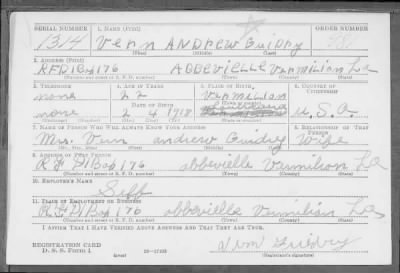 SERIAL NUMBER 1. NAME (Print) ORDER NUMBER
1314 Vern ANDREW Guidry
(First) (Middle) (Last)
2. ADDRESS (Print)
RFD1Box176 ABBEVIELLE Vermilian La
(Number and street or R. F. D. number) (Town) (County) (State)
3. TELEPHONE 4. AGE IN YEARS 5. PLACE OF BIRTH 6. COUNTRY OF CITIZENSHIP
none 22 Vermilian
DATE OF BIRTH
none 2 4 1918 U.S.A.
7. NAME OF PERSON WHO WILL ALWAYS KNOW YOUR ADDRESS 8. RELATIONSHIP OF THAT PERSON
Mrs. Vern andrew Guidry Wife
(Mr., Mrs., Miss) (First) (Middle) (Last)
9. ADDRESS OF THAT PERSON
R F D1Box176 abbevielle Vermilion La
(Number and street or R. F. D. number) (Town) (County) (State)
10. EMPLOYER'S NAME
Self
11. PLACE OF EMPLOYMENT OR BUSINESS
R F D1Box176 abbevielle Vermilian La
(Number and street or R. F. D. number) (Town) (County) (State)
I AFFIRM THAT I HAVE VERIFIED ABOVE ANSWERS AND THAT THEY ARE TRUE.
REGISTRATION CARD
D. S. S. Form 1 (over) (Registrant's signature)
Guidry